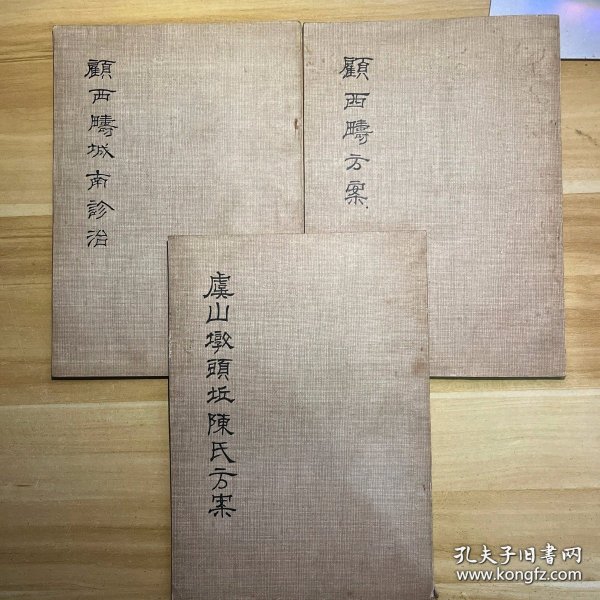 顧西疇城南診治
顧西疇方案
虞山墩頭坵陳氏方案
孔夫子旧书网
www.kongfz.com